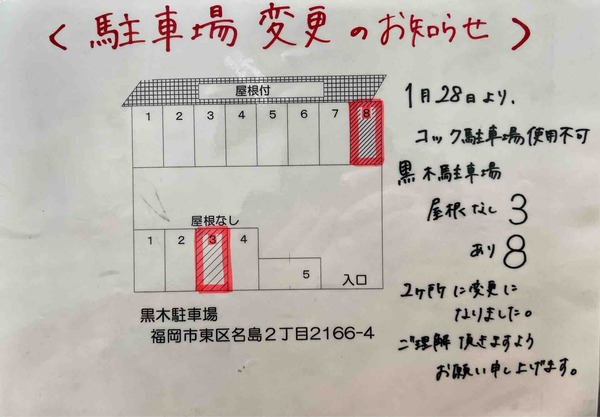 〈駐車場 変更のお知らせ〉
屋根付
1 2 3 4 5 6 7 8
屋根なし
1 2 3 4
5
入口
黒木駐車場
福岡市東区名島2丁目2166-4
1月28日より、
コック駐車場使用不可
黒木駐車場
屋根なし 3
あり 8
2ヶ所に変更に
なりました。
ご理解頂きますよう
お願い申し上げます。